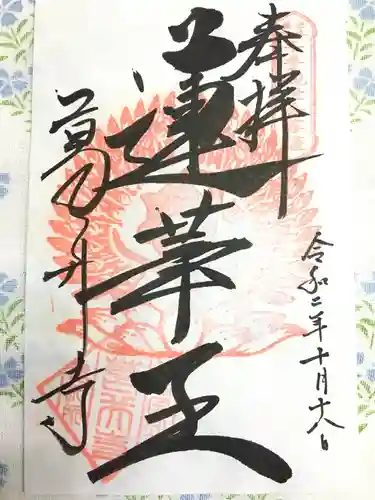 奉拝
令和二年十月十八日
蓮華王
葛井寺